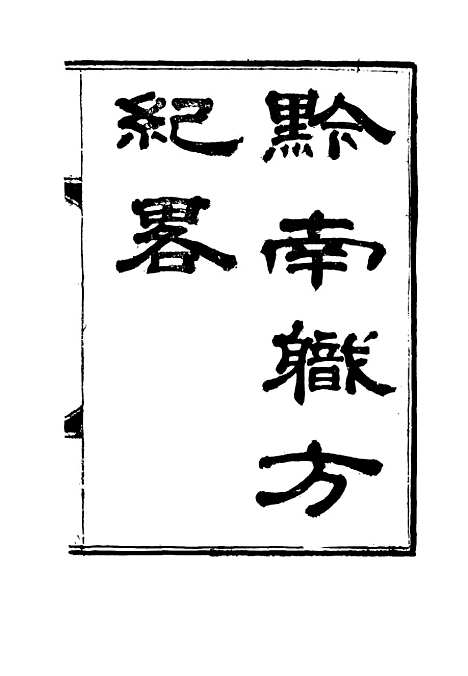 黔南軄方
紀畧